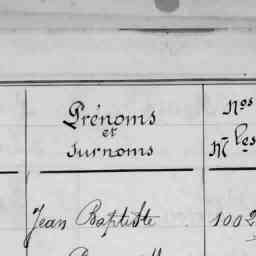 Prénoms
et
surnoms
Nos
Mles
Jean Baptiste 1002